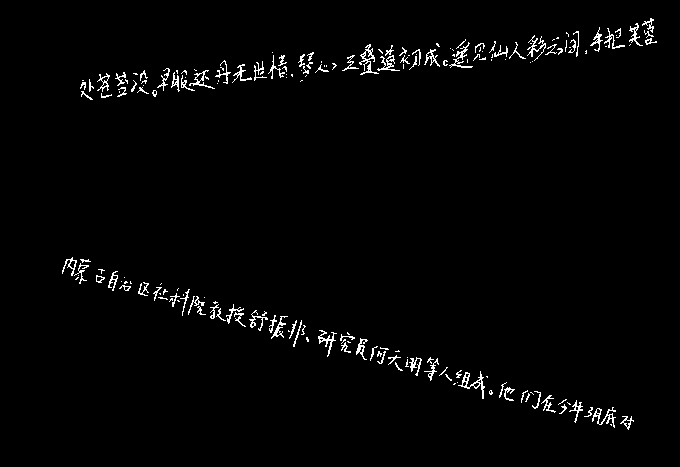 处苍苔没。早服还丹无世情，琴心三叠道初成。遥见仙人彩云间，手把芙蓉
内蒙古自治区社科院教授舒振邦、研究员何天明等人组成。他们在今年3月底对